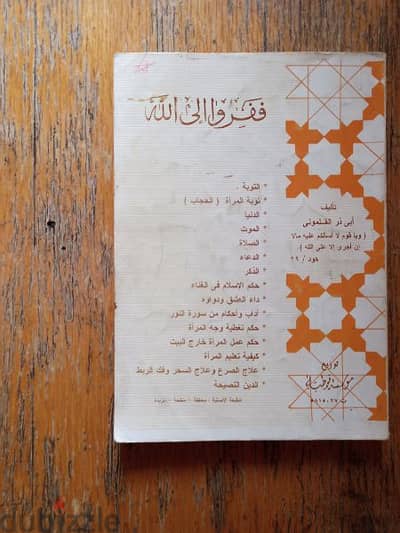 ففروا إلى الله
* التوبة .
* توبة المرأة ( الحجاب )
* الدنيا
* الموت
* الصلاة
* الدعاء
* الذكر
* حكم الإسلام فى الغناء
* داء العشق ودواؤه
* آداب وأحكام من سورة النور
* حكم تغطية وجه المرأة
* حكم عمل المرأة خارج البيت
* كيفية تعليم المرأة
* علاج الصرع وعلاج السحر وفك الربط
* الدين النصيحة
الطبعة الأصلية - محققة - منقحة - مزيدة
تأليف
أبى ذر القلمونى
( ويا قوم لا أسألكم عليه مالا
إن أجرى إلا على الله )
هود / ٢٩
توزيع
dubizzle